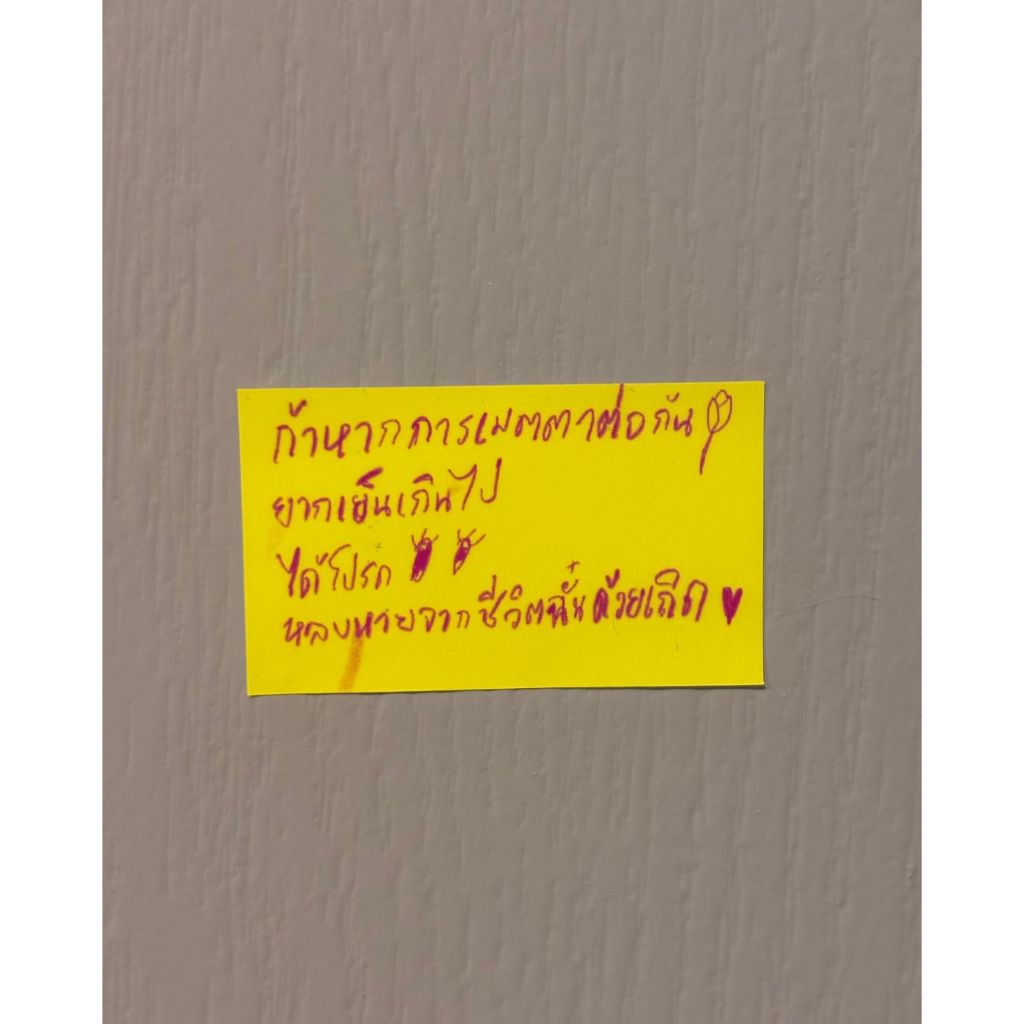 ถ้าหากการเมตตาต่อกัน
ยากเย็นเกินไป
ได้โปรด
หลงหายจากชีวิตฉันด้วยเถิด